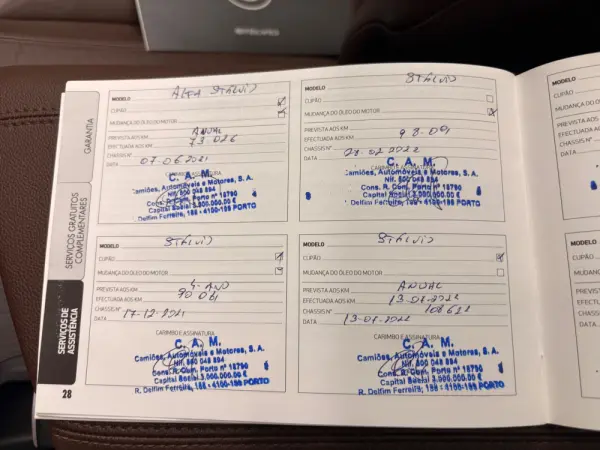 STELVIO
GARANTIA
SERVIÇOS GRATUITOS
COMPLEMENTARES
SERVIÇOS DE
ASSISTÊNCIA
MODELO ALFA STELVIO
CUPÃO
MUDANÇA DO ÓLEO DO MOTOR
PREVISTA AOS KM ANUAL
EFECTUADA AOS KM 73 026
CHASSIS Nº
DATA 07.06 2021
CARIMBO E ASSINATURA
C. A. M.
Camiões, Automóveis e Motores, S. A.
Nif. 500 048 894
Cons. R. Com. Porto nº 18790
Capital Social 3.000.000.00 €
R. Delfim Ferreira, 188 - 4100-199 PORTO
MODELO STELVIO
CUPÃO
MUDANÇA DO ÓLEO DO MOTOR
PREVISTA AOS KM
EFECTUADA AOS KM
CHASSIS Nº
DATA 02 2022
CARIMBO E ASSINATURA
C. A. M.
Camiões, Automóveis e Motores, S. A.
Nif. 500 048 894
Cons. R. Com. Porto nº 18790
Capital Social 3.000.000.00 €
R. Delfim Ferreira, 188 - 4100-199 PORTO
MODELO STELVIO
CUPÃO
MUDANÇA DO ÓLEO DO MOTOR
PREVISTA AOS KM
EFECTUADA AOS KM
CHASSIS Nº
DATA 17-12-2021
CARIMBO E ASSINATURA
C. A. M.
Camiões, Automóveis e Motores, S. A.
Nif. 500 048 894
Cons. R. Com. Porto nº 18790
Capital Social 3.000.000.00 €
R. Delfim Ferreira, 188 - 4100-199 PORTO
MODELO STELVIO
CUPÃO
MUDANÇA DO ÓLEO DO MOTOR
PREVISTA AOS KM ANUAL
EFECTUADA AOS KM
CHASSIS Nº
DATA
CARIMBO E ASSINATURA
C. A. M.
Camiões, Automóveis e Motores, S. A.
Nif. 500 048 894
Cons. R. Com. Porto nº 18790
Capital Social 3.000.000.00 €
R. Delfim Ferreira, 188 - 4100-199 PORTO
28
MODELO
CUPÃO
MUDANÇA DO
PREVISTA AOS
EFECTUADA AO
CHASSIS Nº
DATA
MODELO
CUPÃO
MUDANÇA DO
PREVISTA AOS
EFECTUADA A
CHASSIS Nº
DATA